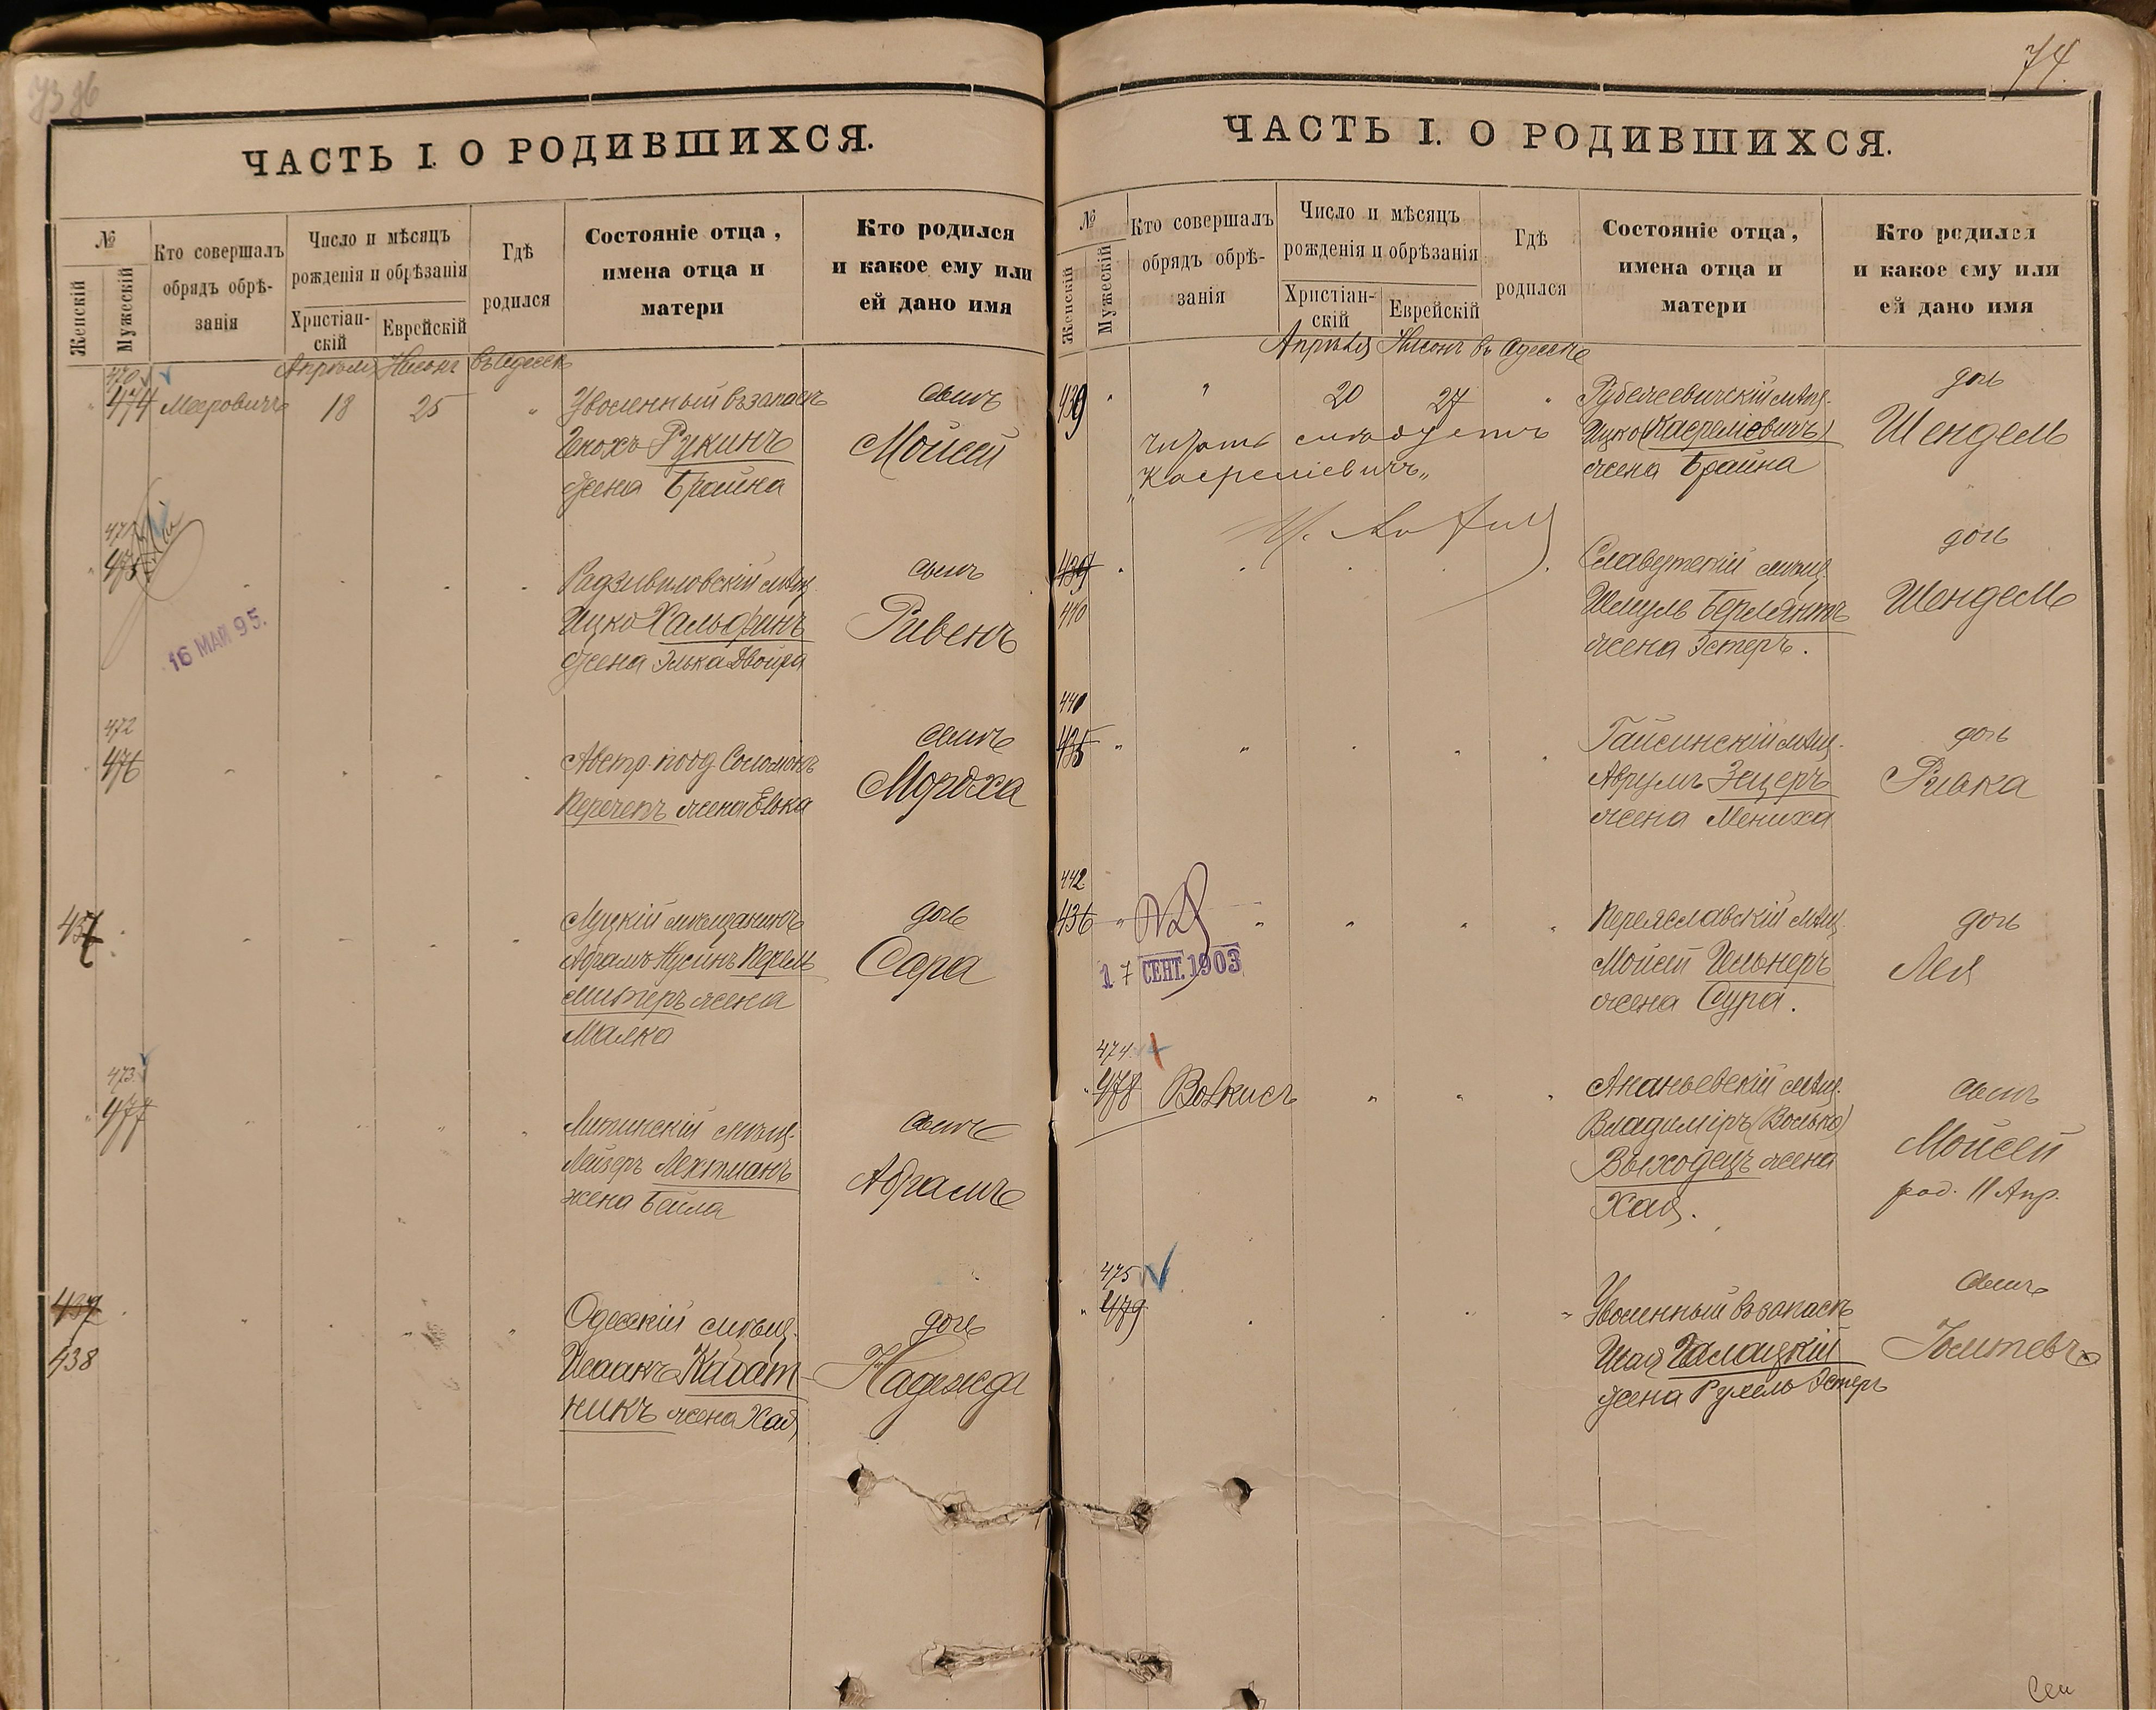 ЧАСТЬ I. О РОДИВШИХСЯ.
№
Женскій
Мужескій
Кто совершалъ
обрядъ обрѣ-
занія
Число и мѣсяцъ
рожденія и обрѣзанія
Христіан-
скій
Еврейскій
Гдѣ
родился
Состояніе отца,
имена отца и
матери
Кто родился
и какое ему или
ей дано имя
Апрѣля Нисонъ въ Одессѣ
470
474 Мееровичъ 18 25 " Уволенный въ запасъ сынъ
Енохъ Рукинъ Мойсей
жена Брайна
471
475
Радзивиловскій мѣщ. сынъ
Ицко Хальфинъ Ривенъ
жена Элька Двойра
16 МАЙ 95.
472
476
Австр. подд. Соломонъ сынъ
Перечепъ жена Елька Мордха
437
Луцкій мѣщанинъ дочь
Абрамъ Нусинъ Перель Сара
жена
Малка
473
477
Литинскій мѣщ. сынъ
Лейзеръ Лехтманъ Абрамъ
жена Бейла
437
438
Одесскій мѣщ. дочь
Исаакъ Кагат- Надежда
никъ жена Хая
74.
ЧАСТЬ I. О РОДИВШИХСЯ.
№
Женскій
Мужескій
Кто совершалъ
обрядъ обрѣ-
занія
Число и мѣсяцъ
рожденія и обрѣзанія
Христіан-
скій
Еврейскій
Гдѣ
родился
Состояніе отца,
имена отца и
матери
Кто родился
и какое ему или
ей дано имя
Апрѣля Нисонъ въ Одессѣ
439 " " 20 27 " мѣщ. дочь
Ицко Шендель
жена Брайна
читать слѣдуетъ
"Касреліевичъ"
439
440
Славутскій мѣщ. дочь
Шмуль Берлянтъ Шендель
жена Эстеръ.
441
435
Гайсинскій мѣщ. дочь
Аврумъ Зецеръ Ривка
жена Мениха
442
436
Переяславскій мѣщ. дочь
Мойсей Гельнеръ Лея
жена Сура.
17 СЕНТ. 1903
474
478 Волкисъ " " " Ананьевскій мѣщ. сынъ
Владиміръ (Волько) Мойсей
Выходецъ жена род. 11 Апр.
Хая.
475
479
Уволенный въ запасъ сынъ
Шая Галацкій Іомтевъ
жена Рухель Эстеръ